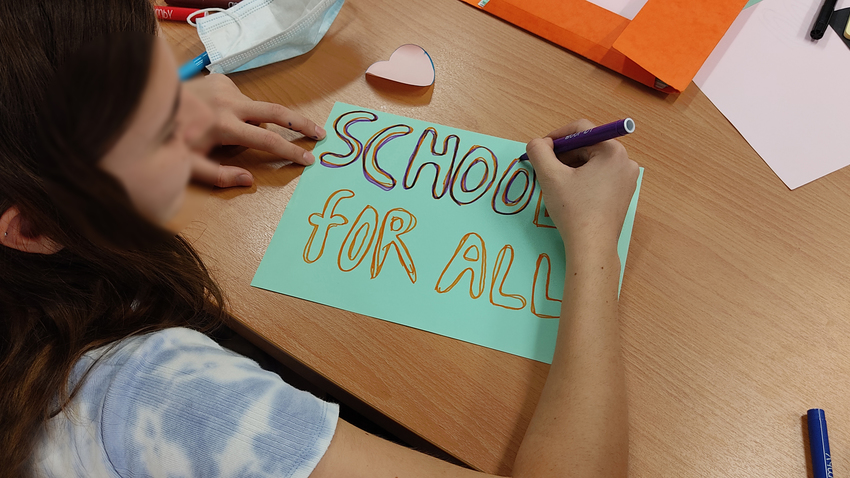 SCHOOL
fOR ALL